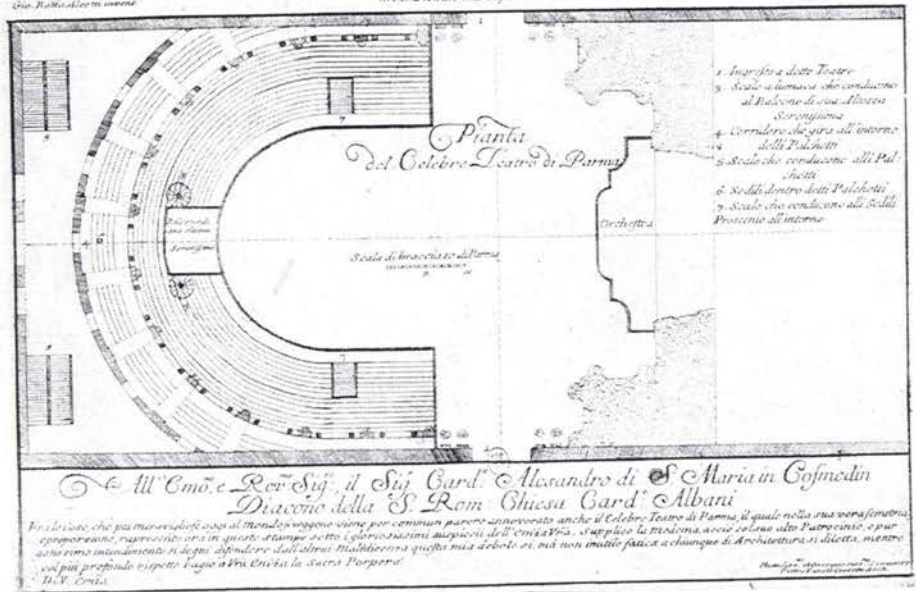 Pianta
del Celebre Teatro di Parma
1. Ingresso a detto Teatro
3. Scale a lumaca che conducono
al Balcone di sua Altezza
Serenissima
4. Corridore che gira all'intorno
delli Palchetti
5. Scale che conducono alli Pal-
chetti
6. Sedili dentro detti Palchetti
7. Scale che conducono alli Sedili
Proscenio all'intorno
Orchestra
Serenissima
Scala di braccia 10 di Parma
All' Emo. e Rev. Sig. il Sig. Card. Alesandro di S. Maria in Cosmedin
Diacono della S. Rom. Chiesa Card. Albani
Fra le cose, che più meravigliose oggi al mondo si veggono viene per commun parere annoverato anche il Celebre Teatro di Parma, il quale nella sua vera simetria,
e proporzione, rappresento ora in queste stampe sotto i gloriosissimi auspicii dell' Emza Vra. Supplico la medema, acciò col suo alto Patrocinio, e pur
intendimento si degni difendere dall'altrui questa mia debole si, mà non inutile fatica a chiunque di Architettura si diletta, mentre
col più profondo rispetto bagio a Vra Emza la Sacra Porpora
D. V. Emza